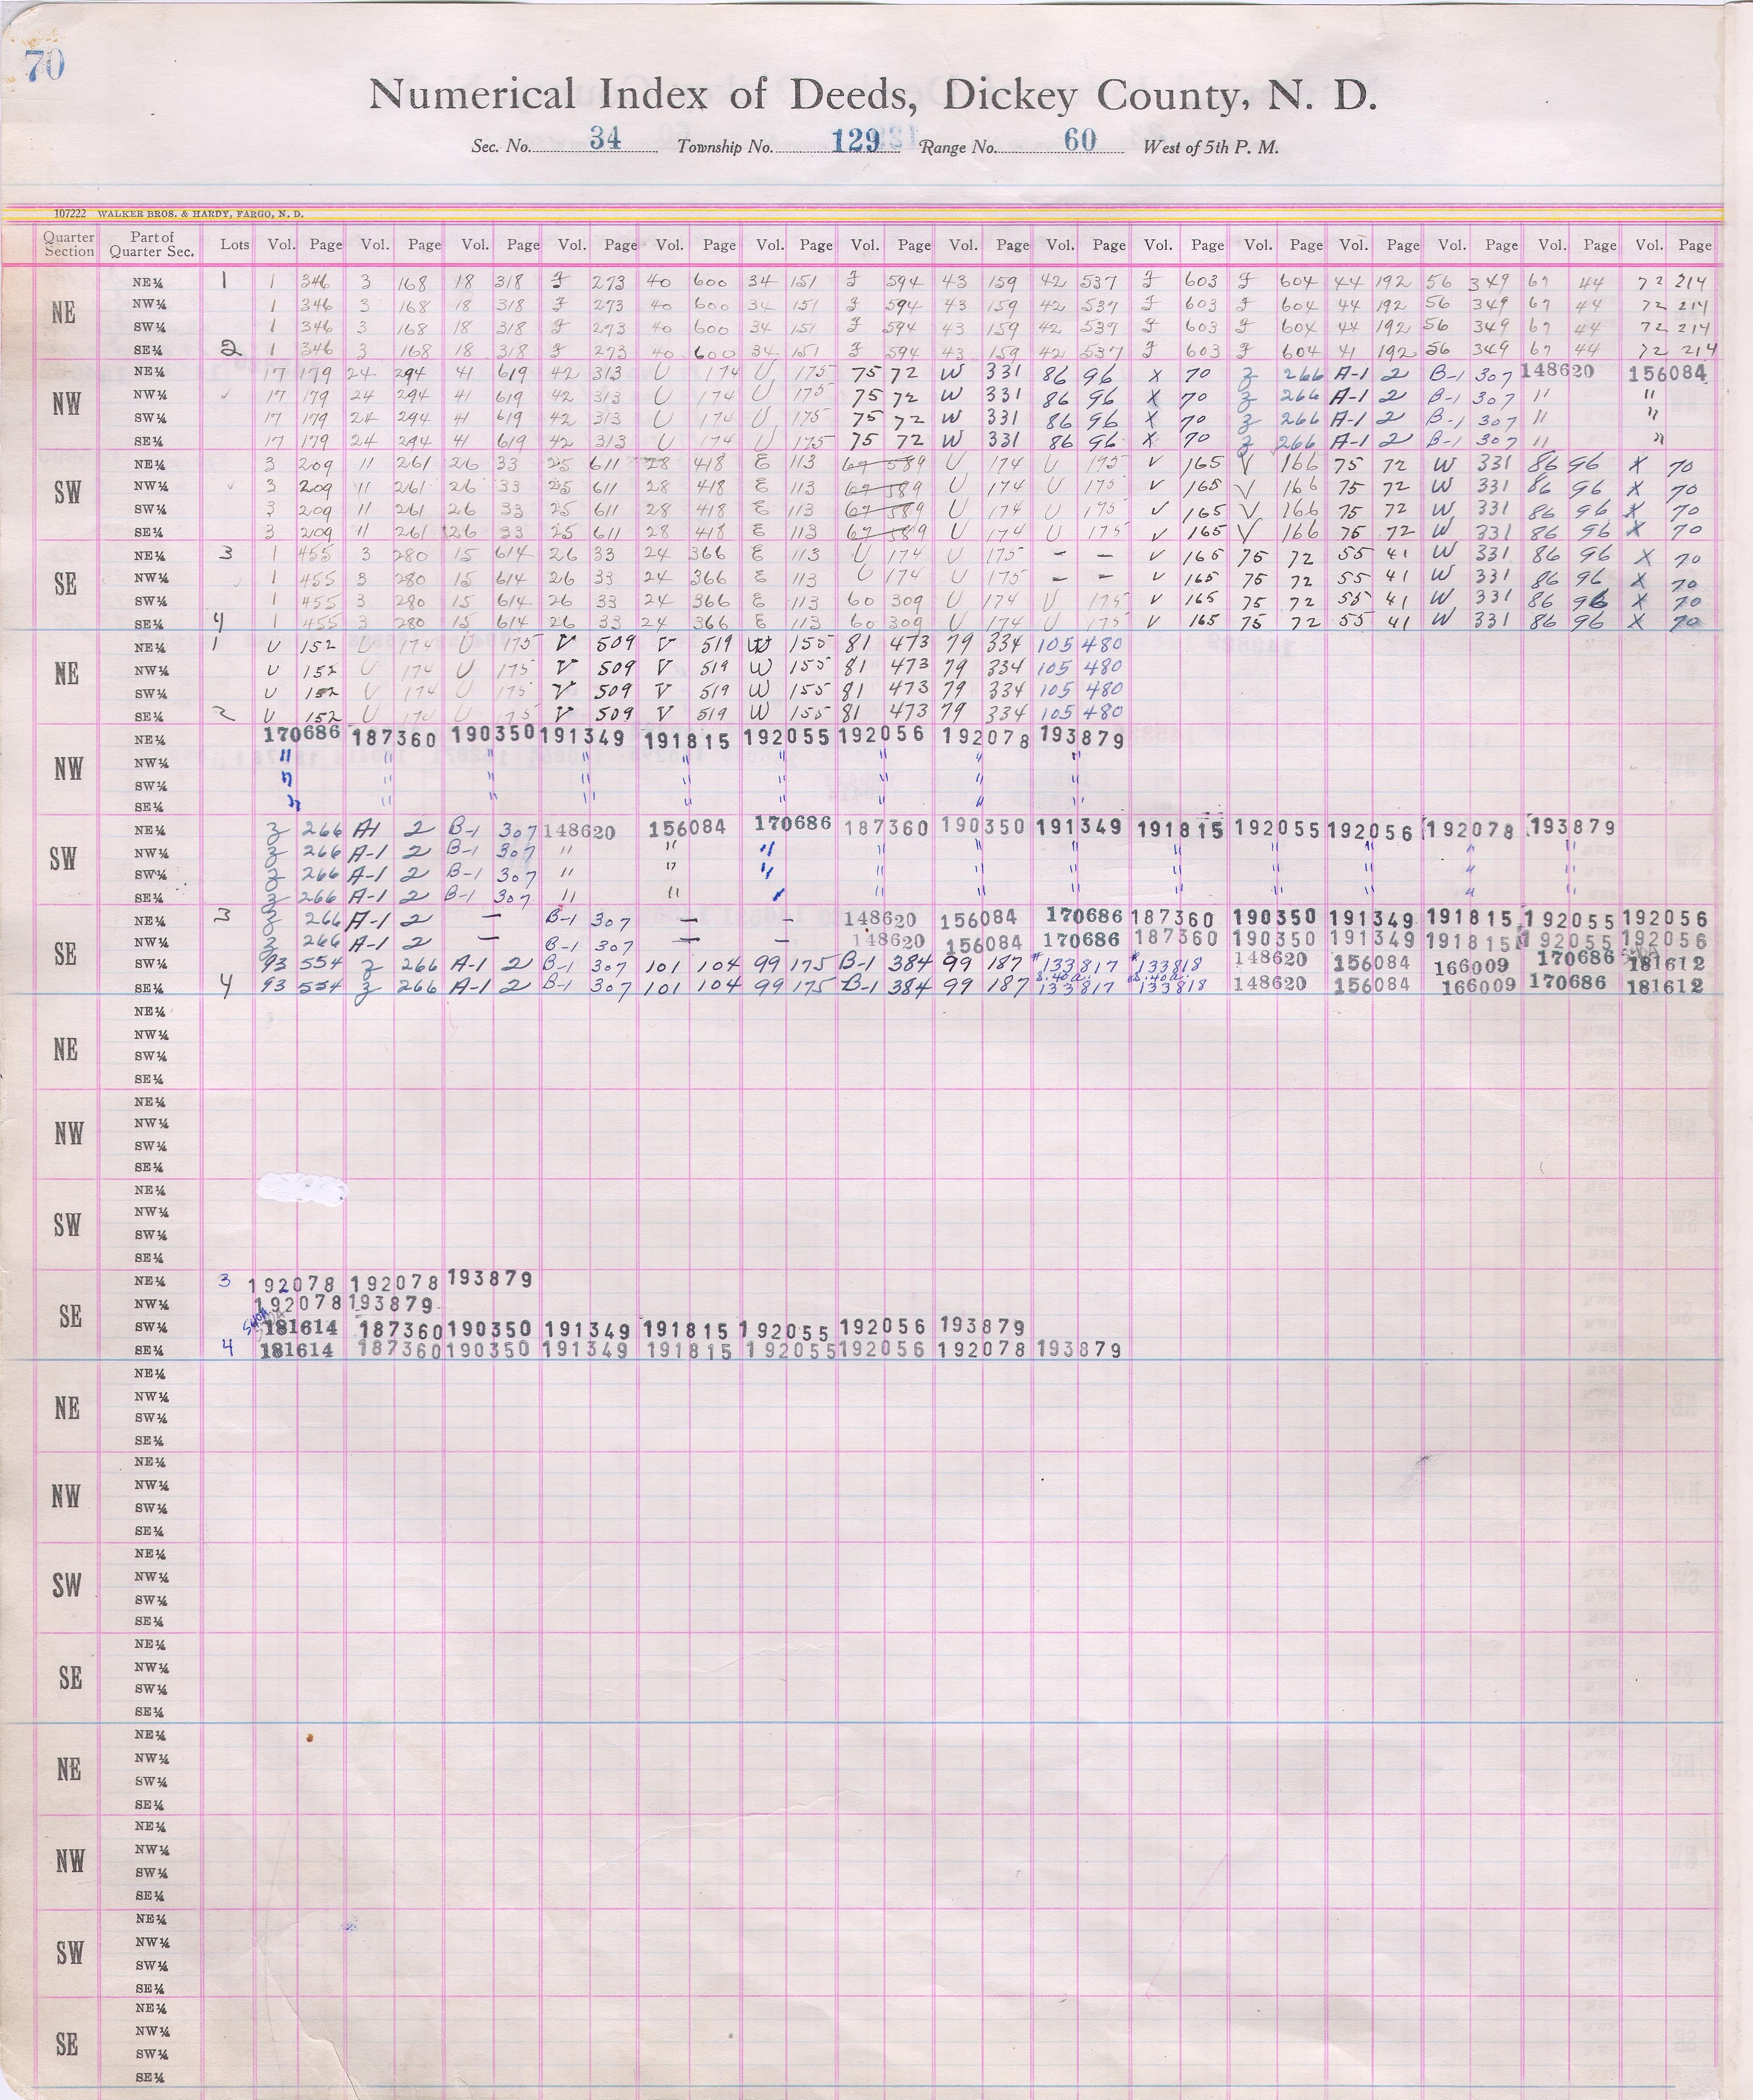 70
Numerical Index of Deeds, Dickey County, N. D.
Sec. No. 34 Township No. 129 Range No. 60 West of 5th P. M.
107222 WALKER BROS. & HARDY, FARGO, N. D.
Quarter Section Part of Quarter Sec. Lots Vol. Page Vol. Page Vol. Page Vol. Page Vol. Page Vol. Page Vol. Page Vol. Page Vol. Page Vol. Page Vol. Page Vol. Page Vol. Page Vol. Page Vol. Page
NE
NE¼ 1 1 346 3 168 18 318 273 40 600 34 151 594 43 159 42 537 603 604 44 192 56 349 67 44 72 214
NW¼ 1 346 3 168 18 318 273 40 600 34 151 594 43 159 42 537 603 604 44 192 56 349 67 44 72 214
SW¼ 1 346 3 168 18 318 273 40 600 34 151 594 43 159 42 537 603 604 44 192 56 349 67 44 72 214
SE¼ 2 1 346 3 168 18 318 273 40 600 34 151 594 43 159 42 537 603 604 41 192 56 349 67 44 72 214
NW
NE¼ 17 179 24 294 41 619 42 313 U 174 U 175 75 72 W 331 86 96 X 70 Z 266 A-1 2 B-1 307 148620 156084
NW¼ 17 179 24 294 41 619 42 313 U 174 U 175 75 72 W 331 86 96 X 70 Z 266 A-1 2 B-1 307 " "
SW¼ 17 179 24 294 41 619 42 313 U 174 U 175 75 72 W 331 86 96 X 70 Z 266 A-1 2 B-1 307 " "
SE¼ 17 179 24 294 41 619 42 313 U 174 U 175 75 72 W 331 86 96 X 70 Z 266 A-1 2 B-1 307 " "
SW
NE¼ 3 209 11 261 26 33 25 611 28 418 E 113 67 589 U 174 U 175 V 165 V 166 75 72 W 331 86 96 X 70
NW¼ 3 209 11 261 26 33 25 611 28 418 E 113 67 589 U 174 U 175 V 165 V 166 75 72 W 331 86 96 X 70
SW¼ 3 209 11 261 26 33 25 611 28 418 E 113 67 589 U 174 U 175 V 165 V 166 75 72 W 331 86 96 X 70
SE¼ 3 209 11 261 26 33 25 611 28 418 E 113 67 589 U 174 U 175 V 165 V 166 75 72 W 331 86 96 X 70
SE
NE¼ 3 1 455 3 280 15 614 26 33 24 366 E 113 U 174 U 175 - - V 165 75 72 55 41 W 331 86 96 X 70
NW¼ 1 455 3 280 15 614 26 33 24 366 E 113 U 174 U 175 - - V 165 75 72 55 41 W 331 86 96 X 70
SW¼ 1 455 3 280 15 614 26 33 24 366 E 113 60 309 U 174 U 175 V 165 75 72 55 41 W 331 86 96 X 70
SE¼ 4 1 455 3 280 15 614 26 33 24 366 E 113 60 309 U 174 U 175 V 165 75 72 55 41 W 331 86 96 X 70
NE
NE¼ 1 U 152 U 174 U 175 V 509 V 519 W 155 81 473 79 334 105 480
NW¼ U 152 U 174 U 175 V 509 V 519 W 155 81 473 79 334 105 480
SW¼ U 152 U 174 U 175 V 509 V 519 W 155 81 473 79 334 105 480
SE¼ 2 U 152 U 174 U 175 V 509 V 519 W 155 81 473 79 334 105 480
NW
NE¼ 170686 187360 190350 191349 191815 192055 192056 192078 193879
NW¼ " " " " " " " " "
SW¼ " " " " " " " " "
SE¼ " " " " " " " " "
SW
NE¼ Z 266 A1 2 B-1 307 148620 156084 170686 187360 190350 191349 191815 192055 192056 192078 193879
NW¼ Z 266 A-1 2 B-1 307 " " " " " " " " " " "
SW¼ Z 266 A-1 2 B-1 307 " " " " " " " " " " "
SE¼ Z 266 A-1 2 B-1 307 " " " " " " " " " " "
SE
NE¼ 3 Z 266 A-1 2 - B-1 307 - - 148620 156084 170686 187360 190350 191349 191815 192055 192056
NW¼ Z 266 A-1 2 - B-1 307 - - 148620 156084 170686 187360 190350 191349 191815 192055 192056
SW¼ 93 554 Z 266 A-1 2 B-1 307 101 104 99 175 B-1 384 99 187 133817 133818 148620 156084 166009 170686 181612
SE¼ 4 93 554 Z 266 A-1 2 B-1 307 101 104 99 175 B-1 384 99 187 133817 133818 148620 156084 166009 170686 181612
NE
NE¼
NW¼
SW¼
SE¼
NW
NE¼
NW¼
SW¼
SE¼
SW
NE¼
NW¼
SW¼
SE¼
SE
NE¼ 3 192078 192078 193879
NW¼ 192078 193879
SW¼ 181614 187360 190350 191349 191815 192055 192056 193879
SE¼ 4 181614 187360 190350 191349 191815 192055 192056 192078 193879
NE
NE¼
NW¼
SW¼
SE¼
NW
NE¼
NW¼
SW¼
SE¼
SW
NE¼
NW¼
SW¼
SE¼
SE
NE¼
NW¼
SW¼
SE¼
NE
NE¼
NW¼
SW¼
SE¼
NW
NE¼
NW¼
SW¼
SE¼
SW
NE¼
NW¼
SW¼
SE¼
SE
NE¼
NW¼
SW¼
SE¼